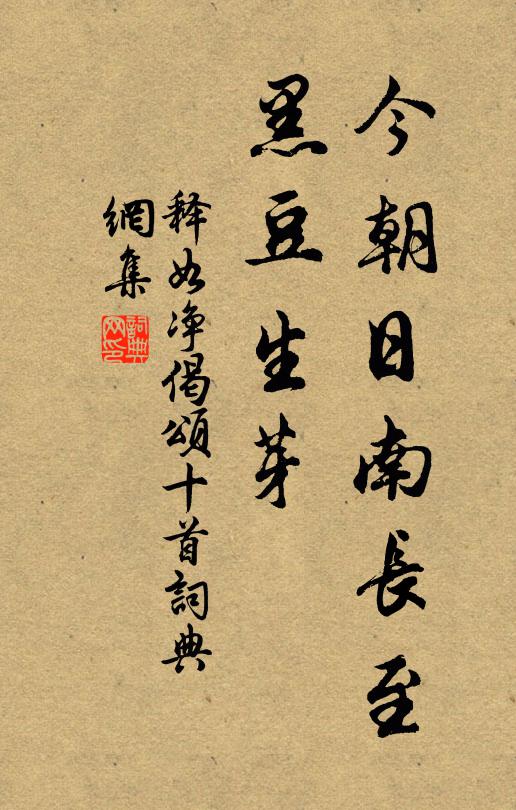 今朝日南長至
黑豆生芽
释如净偈頌十首詞典
網集
詞典网印